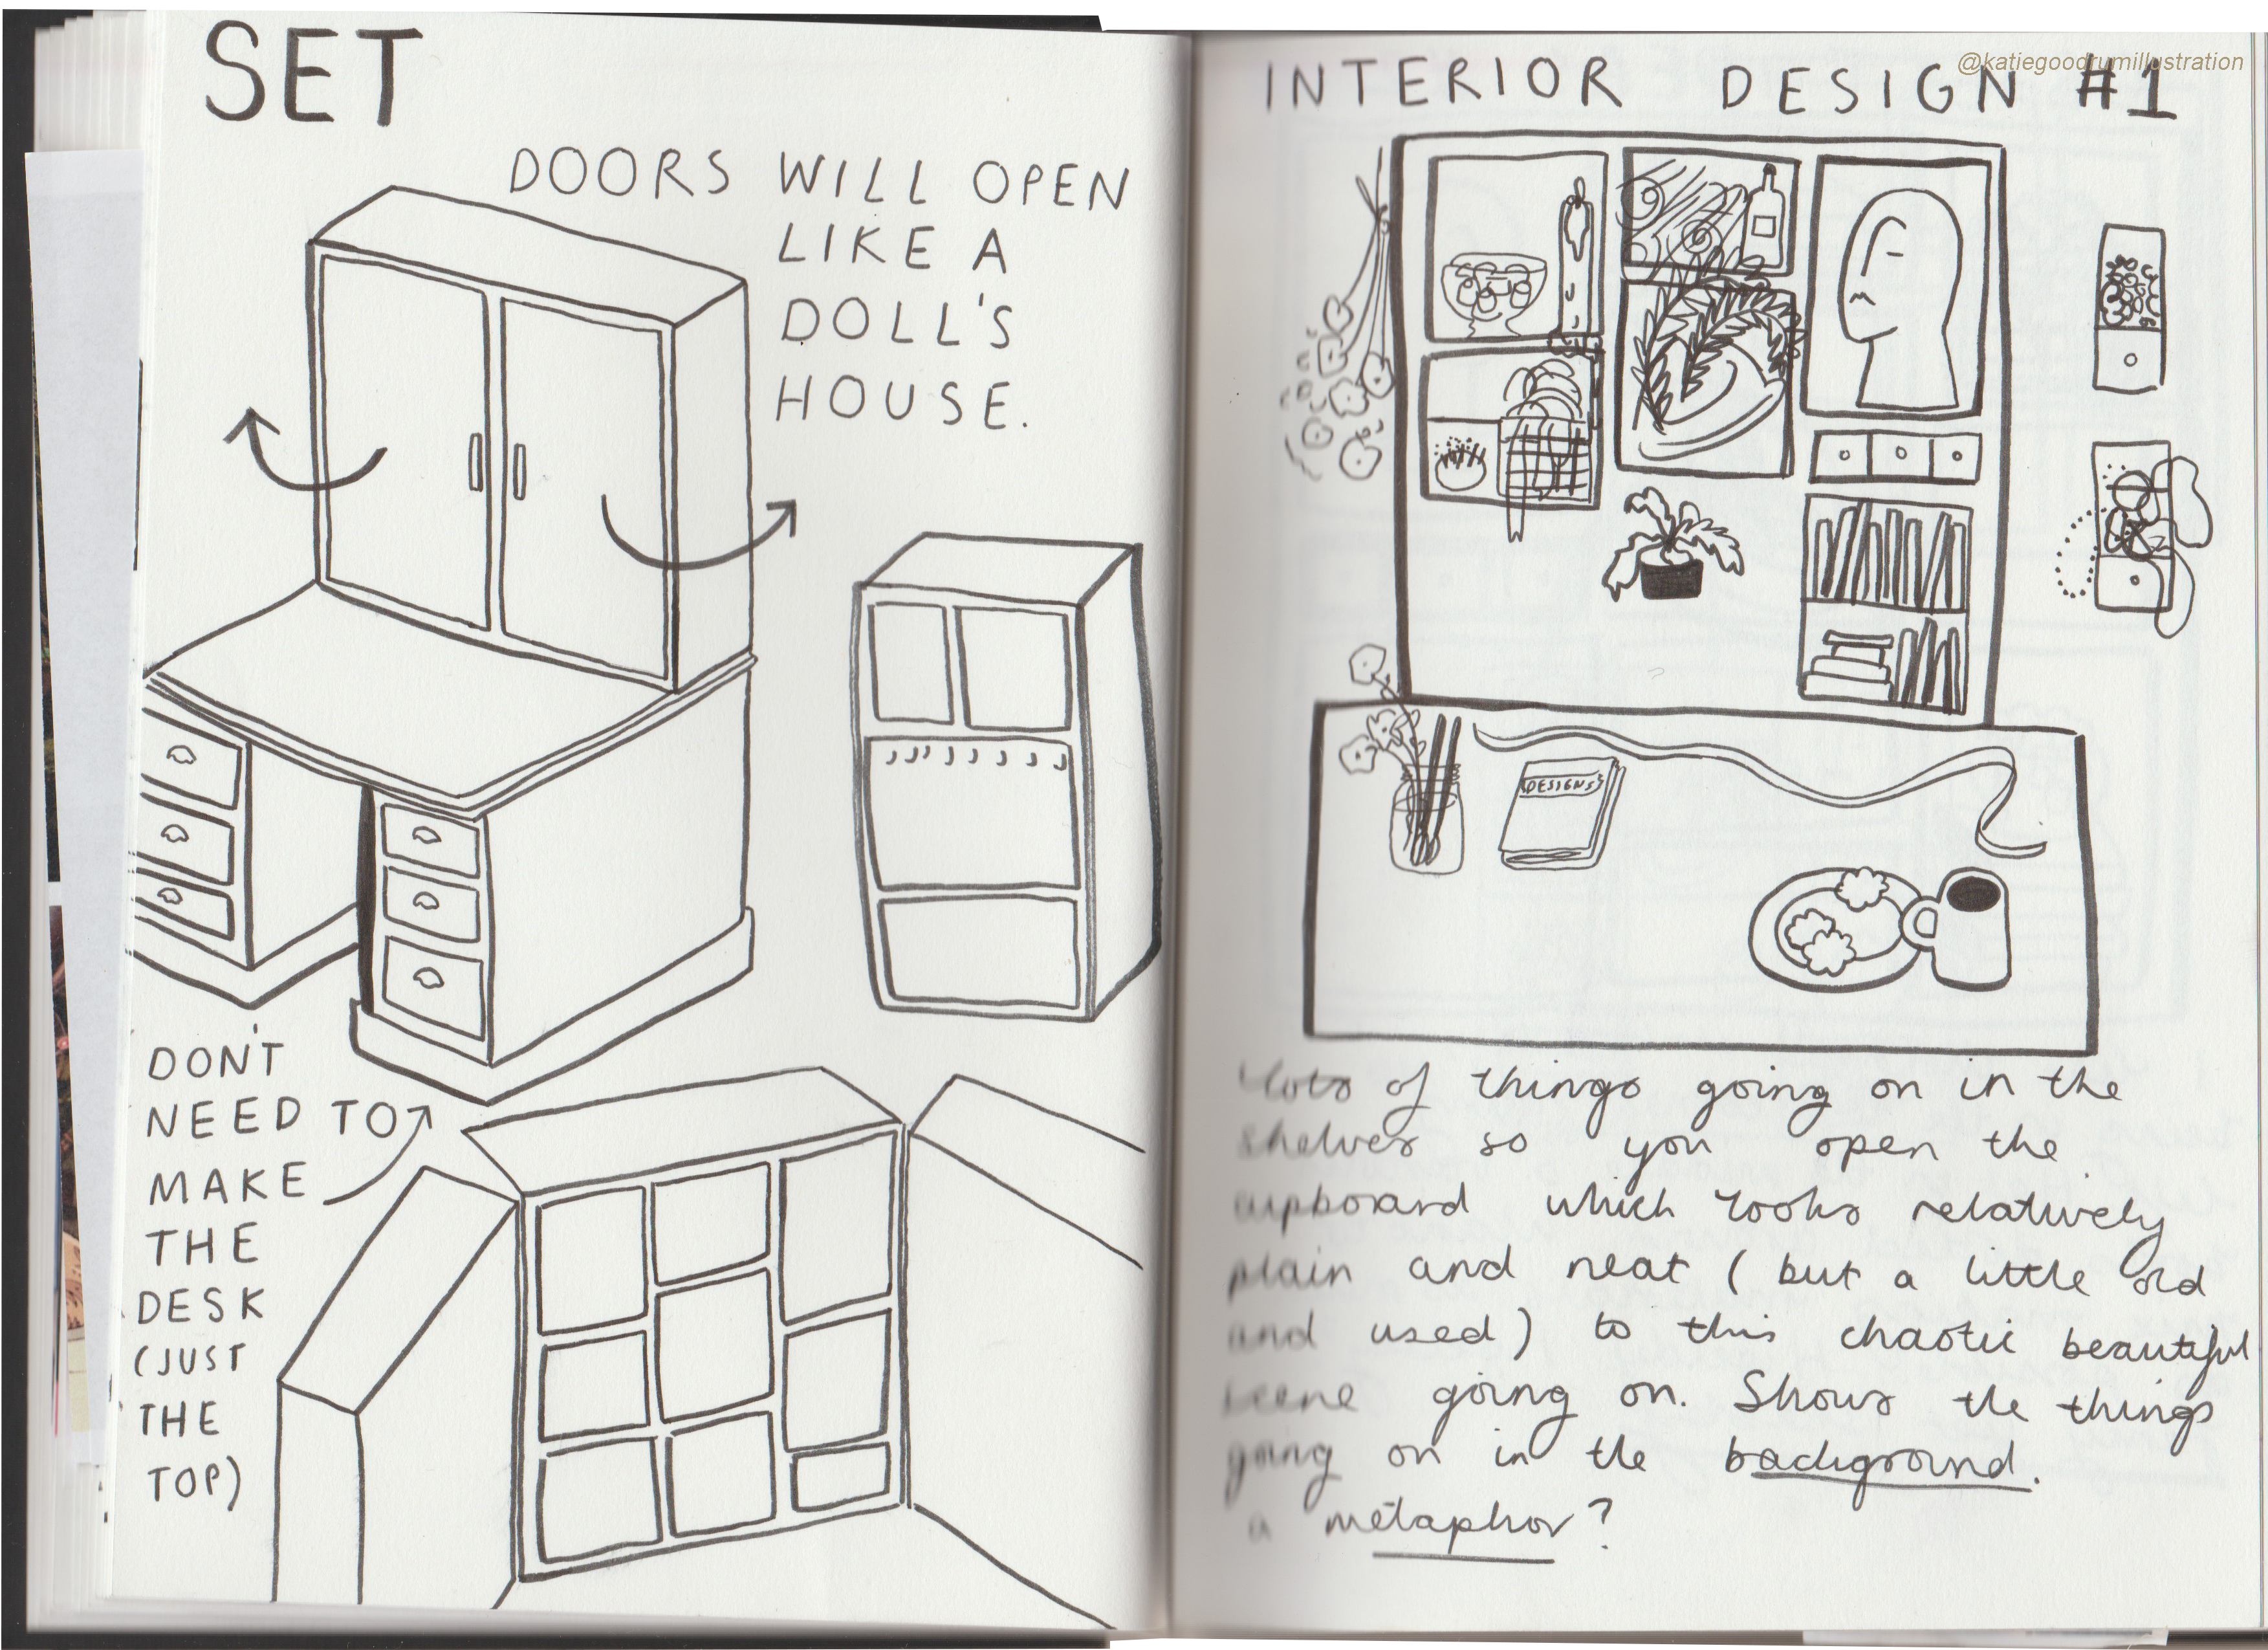 SET
DOORS WILL OPEN
LIKE A
DOLL'S
HOUSE.
DON'T
NEED TO
MAKE
THE
DESK
(JUST
THE
TOP)
@katiegoodrumillustration
INTERIOR DESIGN #1
DESIGNS
lots of things going on in the
shelves so you open the
cupboard which looks relatively
plain and neat (but a little old
and used) to this chaotic beautiful
scene going on. Shows the things
going on in the background.
a metaphor?